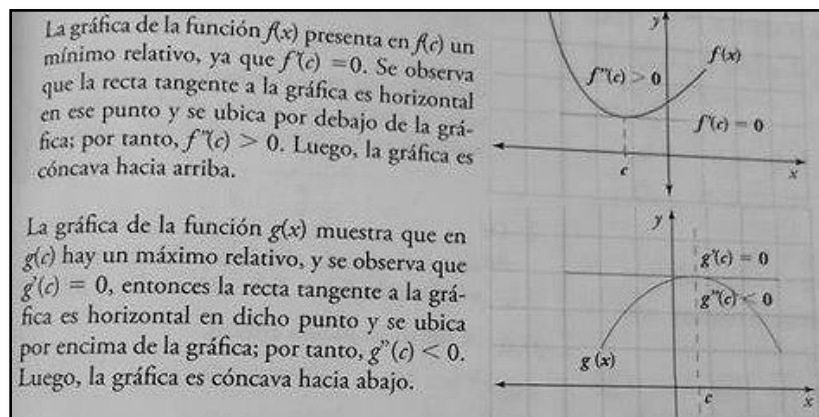 La gráfica de la función f(x) presenta en f(c) un
mínimo relativo, ya que f'(c) =0. Se observa
que la recta tangente a la gráfica es horizontal
en ese punto y se ubica por debajo de la grá-
fica; por tanto, f"(c) > 0. Luego, la gráfica es
cóncava hacia arriba.
y
f(x)
f"(c) > 0
f'(c) = 0
c
x
La gráfica de la función g(x) muestra que en
g(c) hay un máximo relativo, y se observa que
g'(c) = 0, entonces la recta tangente a la grá-
fica es horizontal en dicho punto y se ubica
por encima de la gráfica; por tanto, g"(c) < 0.
Luego, la gráfica es cóncava hacia abajo.
y
g'(c) = 0
g"(c) < 0
g (x)
c
x